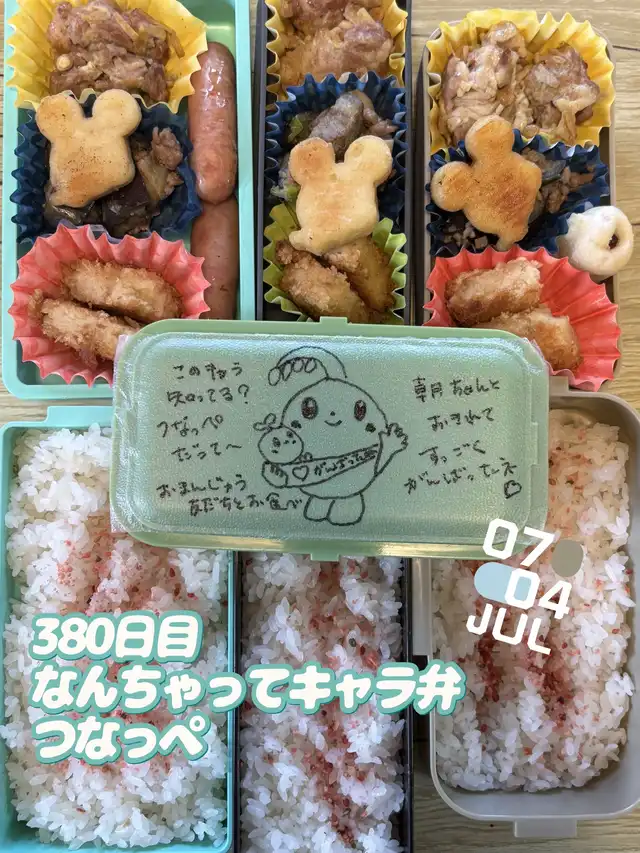 このキャラ
知ってる?
つなっぺ
だって〜
おまんじゅう
友だちとお食べ
がんばったね
朝ちゃんと
おきれて
すっごく
がんばったネ
07
04
JUL
380日目
なんちゃってキャラ弁
つなっぺ